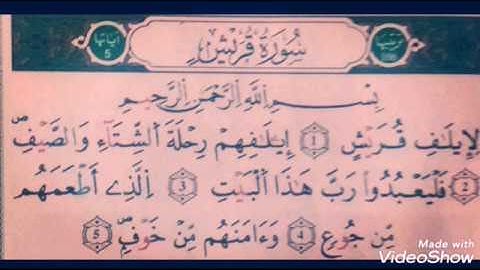 سُورَةُ قُرَيْشٍ
اياتها 5
بِسْمِ اللَّهِ الرَّحْمَٰنِ الرَّحِيمِ
لِإِيلَٰفِ قُرَيْشٍ 1 إِيلَٰفِهِمْ رِحْلَةَ اَلشِّتَآءِ وَالصَّيْفِ
2 فَلْيَعْبُدُواْ رَبَّ هَٰذَا اَلْبَيْتِ 3 اِلَّذِے أَطْعَمَهُم
مِّن جُوعٍ 4 وَءَامَنَهُم مِّنْ خَوْفٍ 5
Made with
VideoShow